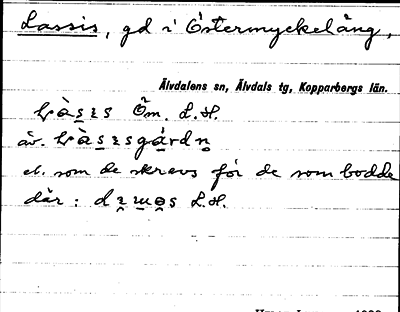 Lassis, gd i Östermyckelång,
Älvdalens sn, Älvdals tg, Kopparbergs län.
Öm. L.H.
äv.
el. som de skrevs för de som bodde
där : L.H.